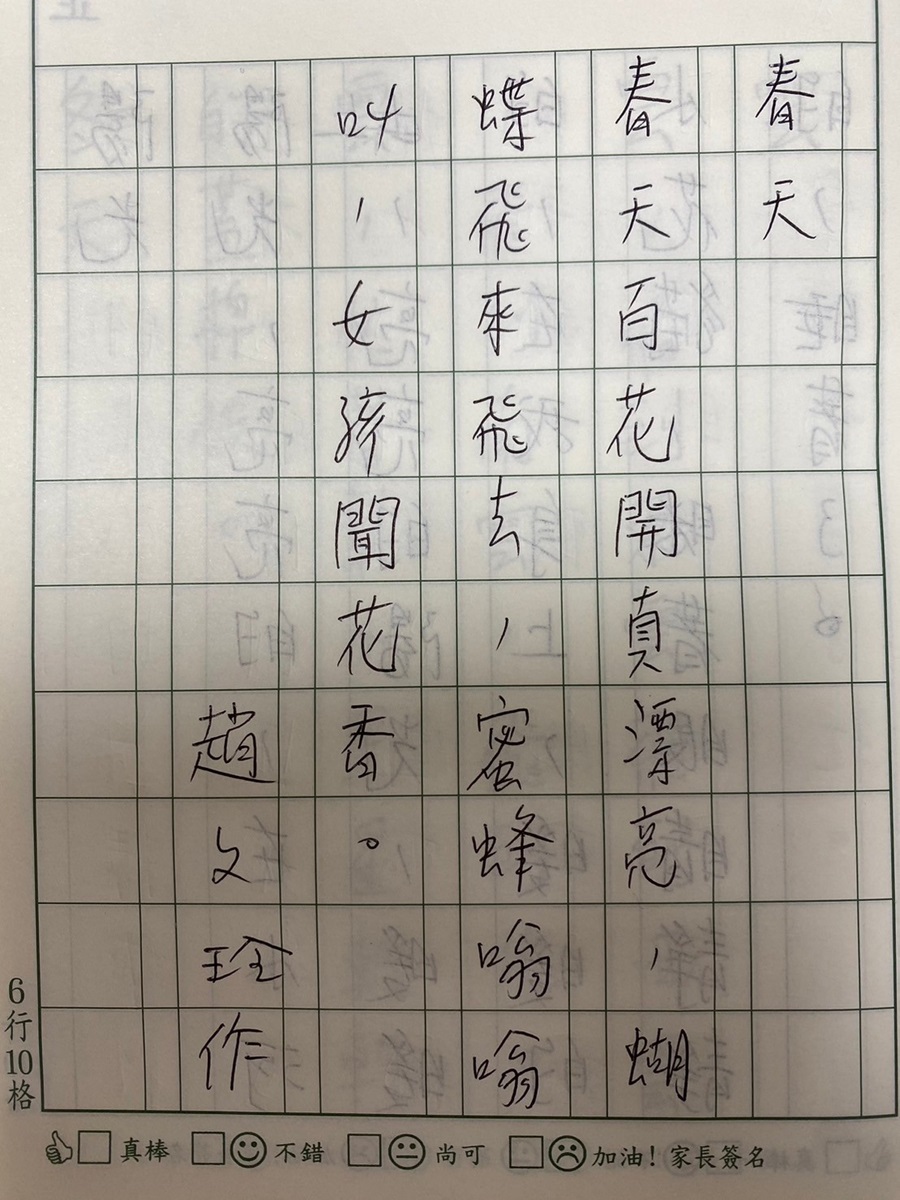 春天
春天百花開真漂亮，蝴
蝶飛來飛去，蜜蜂嗡嗡
叫，女孩聞花香。
趙文琻作
6行10格
真棒 不錯 尚可 加油！家長簽名